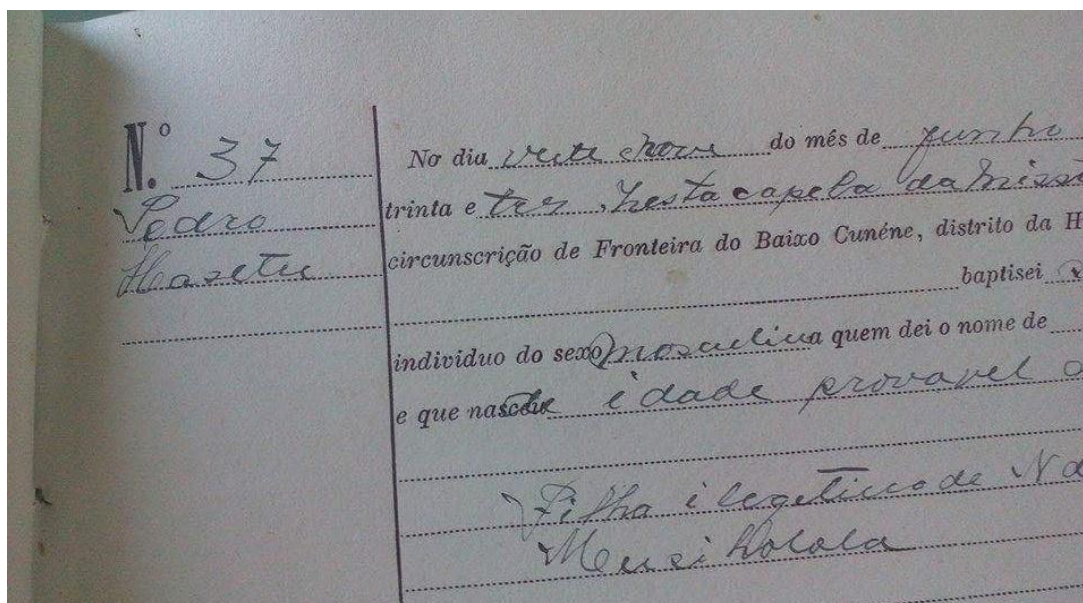 N.º 37
Pedro
No dia vinte nove do mês de junho
trinta e tres, nesta capela da Miss
circunscrição de Fronteira do Baixo Cunéne, distrito da H
baptisei
individuo do sexo masculino a quem dei o nome de
e que nasceu de idade provavel
Filho ilegetimo de